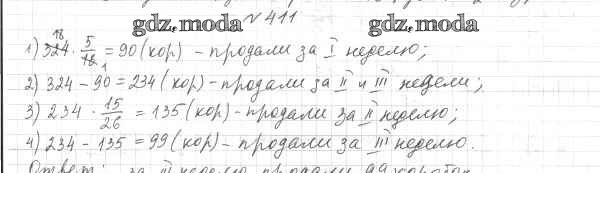 gdz.moda №411 gdz.moda
1) 324 · 5/18 = 90 (кор) - продали за I неделю;
2) 324 - 90 = 234 (кор) - продали за II и III недели;
3) 234 · 15/26 = 135 (кор) - продали за II неделю;
4) 234 - 135 = 99 (кор) - продали за III неделю.
Ответ: за III неделю продали 99 коробок